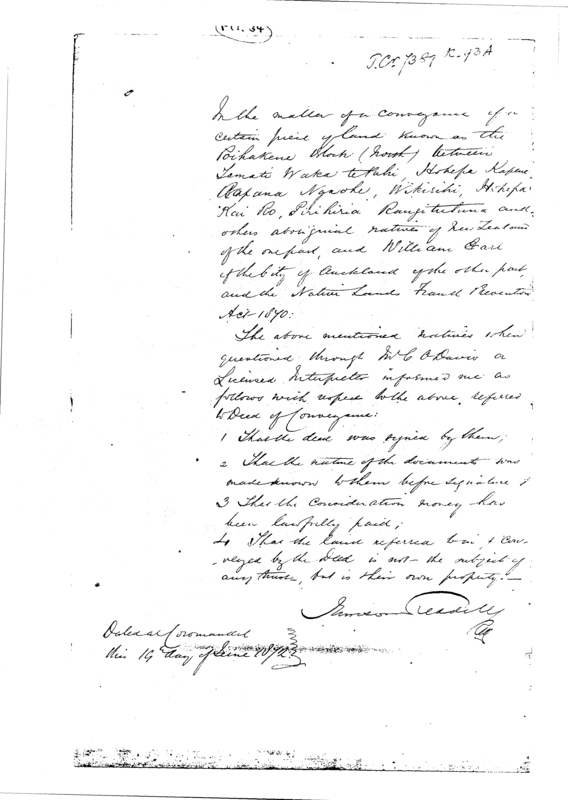 T.Cr. 7389 K. 93A
In the matter of a conveyance of a
certain piece of land known as the
Poihakene Block (North) between
Tamati Waka te Puhi, Hohepa
Ngaohe, Wikiriki, Hohepa
Kai Ro, Pirihiria Rangitutuna and
others aboriginal natives of New Zealand
of the one part, and William
of the City of Auckland of the other part
and the Native Lands Fraud Prevention
Act 1870:
The above mentioned natives when
questioned through Mr C O Davis a
Licensed Interpreter informed me as
follows with respect to the above referred
to Deed of Conveyance:
1 That the deed was signed by them;
2 That the nature of the document was
made known to them before signature;
3 That the consideration money has
been lawfully paid;
4 That the land referred to in, & con-
-veyed by the Deed is not the subject of
any trust, but is their own property:—
Dated at Coromandel
this 19th day of June 1872